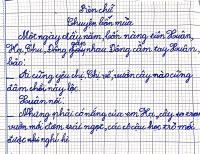 Diễn chữ
Chuyện bốn mùa
Một ngày đầy năm, bốn nàng tiên Xuân,
Hạ, Thu, Đông gặp nhau. Đông cầm tay Xuân,
bảo:
Ai cũng yêu chị. Chị về, vườn cây nào cũng
đâm chồi nảy lộc.
Xuân nói:
- Nhưng phải có nắng của em Hạ, cây trong
vườn mới đơm trái ngọt, các cô cậu học trò mới
được nghỉ hè